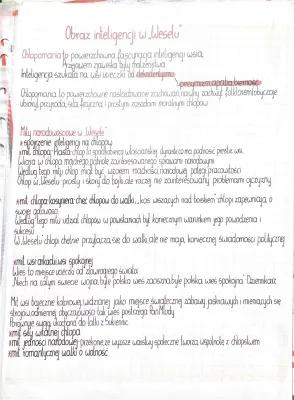 Obraz inteligencji w „Weselu”
Chłopomania to powierzchowna fascynacja inteligencji wsią.
Przejawem zjawiska były małżeństwa
Inteligencja szukała na wsi ucieczki od dekadentyzmu
pesymizm, apatia, bierność
Chłopomania to powierzchowne naśladowanie zachowań, naiwny zachwyt folklorem (obyczaje
ubiory), przyroda, siła fizyczna i prostymi zasadami moralnymi chłopów
Mity narodowościowe w „Weselu”
spojrzenie inteligencji na chłopów
mit chłopa Piasta chłop to spadkobierca włościańskiej dynastii
Władza w chłopach mądrego patriotę zainteresowanego sprawami narodowymi
Według tego mitu chłop miał być wzorem mądrości narodowej, potęgi, pracowitości
Chłop w „Weselu” prosty i skory do bójki, ale raczej nie zainteresowany problemami ojczyzny
mit chłopa kosyniera: chęć chłopów do walki, kos wiszących nad łóżkiem chłopi zapewniają o
swojej gotowości
Według tego mitu udział chłopów w powstaniach był koniecznym warunkiem jego powodzenia i
sukcesu
W „Weselu” chłopi chętnie przyłączą się do walki, ale nie mają koniecznej świadomości politycznej
mit wsi arkadii, wsi spokojnej
Wieś to miejsce ucieczki od zdziwaczałego świata
„Niech na całym świecie wojna, byle polska wieś zaciszna, byle polska wieś spokojna” Dziennikarz
Mit wsi bajecznie kolorowej, widzianej jako miejsce swawolnej zabawy, jaskrawych i mieniących się
strojów, odmiennej obyczajowości tak wieś postrzega Pan Młody
Porównuje swoją ukochaną do lalki z Sukiennic
mit siły witalnej chłopa
mit jedności narodowej - przekonanie, że wyższe warstwy społeczne tworzą wspólnotę z chłopstwem
mit romantycznej walki o wolność